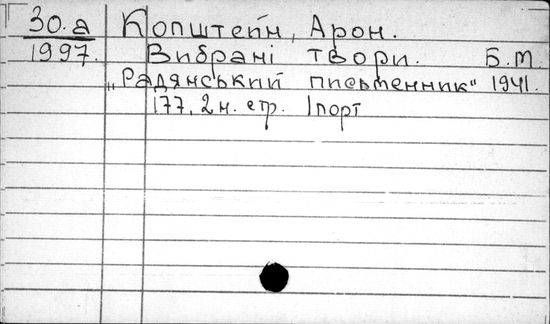 30.а Копштейн, Арон.
1997. Вибрані твори. Б.М.
„Радянський письменник" 1941.
177, 2 н. стр. 1 порт